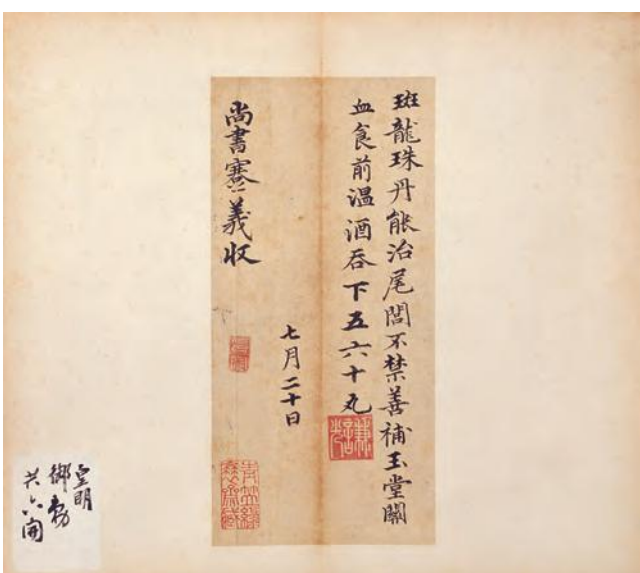 斑龍珠丹能治尾閭不禁善補玉堂關
血食前温酒吞下五六十丸
七月二十日
尚書蹇義收
皇明
御勅
共六開